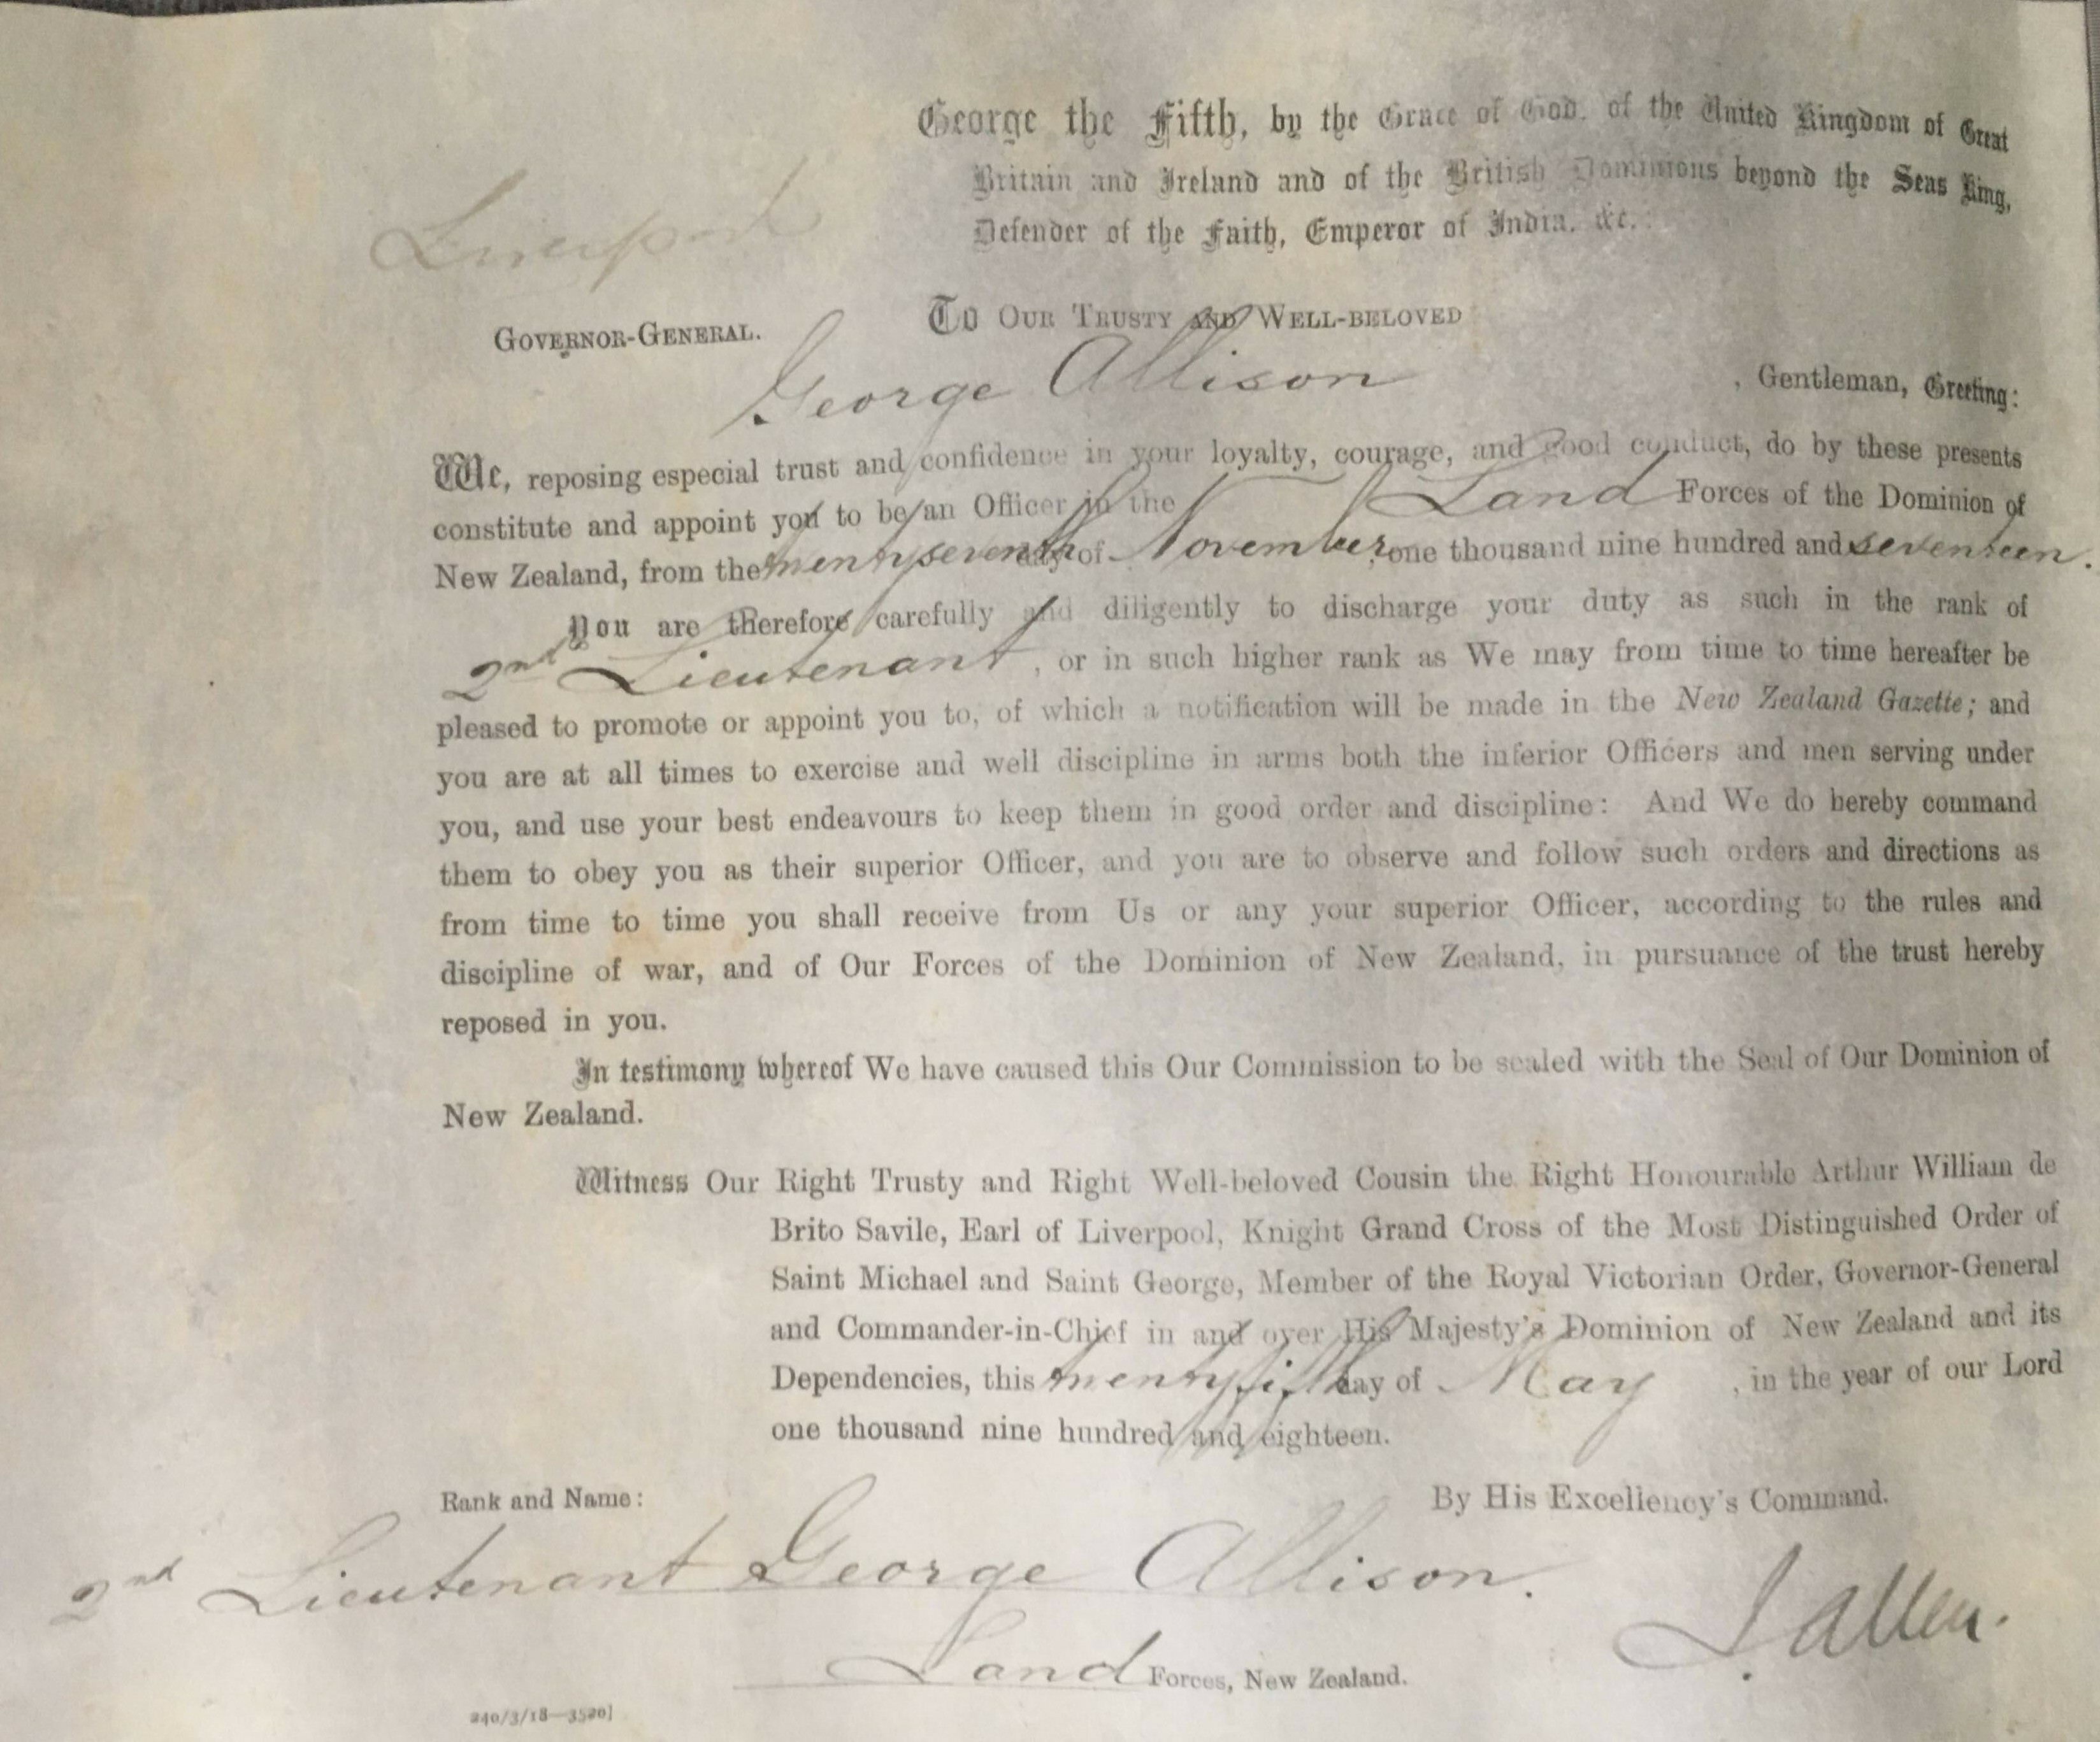 George the Fifth, by the Grace of God, of the United Kingdom of Great
Britain and Ireland and of the British Dominions beyond the Seas King,
Defender of the Faith, Emperor of India, &c.:
Liverpool
GOVERNOR-GENERAL.
To OUR TRUSTY AND WELL-BELOVED
George Allison , Gentleman, Greeting:
We, reposing especial trust and confidence in your loyalty, courage, and good conduct, do by these presents
constitute and appoint you to be an Officer in the Land Forces of the Dominion of
New Zealand, from the twentyseventh day of November, one thousand nine hundred and seventeen.
You are therefore carefully and diligently to discharge your duty as such in the rank of
2nd Lieutenant, or in such higher rank as We may from time to time hereafter be
pleased to promote or appoint you to, of which a notification will be made in the New Zealand Gazette; and
you are at all times to exercise and well discipline in arms both the inferior Officers and men serving under
you, and use your best endeavours to keep them in good order and discipline: And We do hereby command
them to obey you as their superior Officer, and you are to observe and follow such orders and directions as
from time to time you shall receive from Us or any your superior Officer, according to the rules and
discipline of war, and of Our Forces of the Dominion of New Zealand, in pursuance of the trust hereby
reposed in you.
In testimony whereof We have caused this Our Commission to be sealed with the Seal of Our Dominion of
New Zealand.
Witness Our Right Trusty and Right Well-beloved Cousin the Right Honourable Arthur William de
Brito Savile, Earl of Liverpool, Knight Grand Cross of the Most Distinguished Order of
Saint Michael and Saint George, Member of the Royal Victorian Order, Governor-General
and Commander-in-Chief in and over His Majesty's Dominion of New Zealand and its
Dependencies, this twentyfifth day of May , in the year of our Lord
one thousand nine hundred and eighteen.
Rank and Name:
By His Excellency's Command.
2nd Lieutenant George Allison.
J Allen.
Land Forces, New Zealand.
240/3/18—3520]